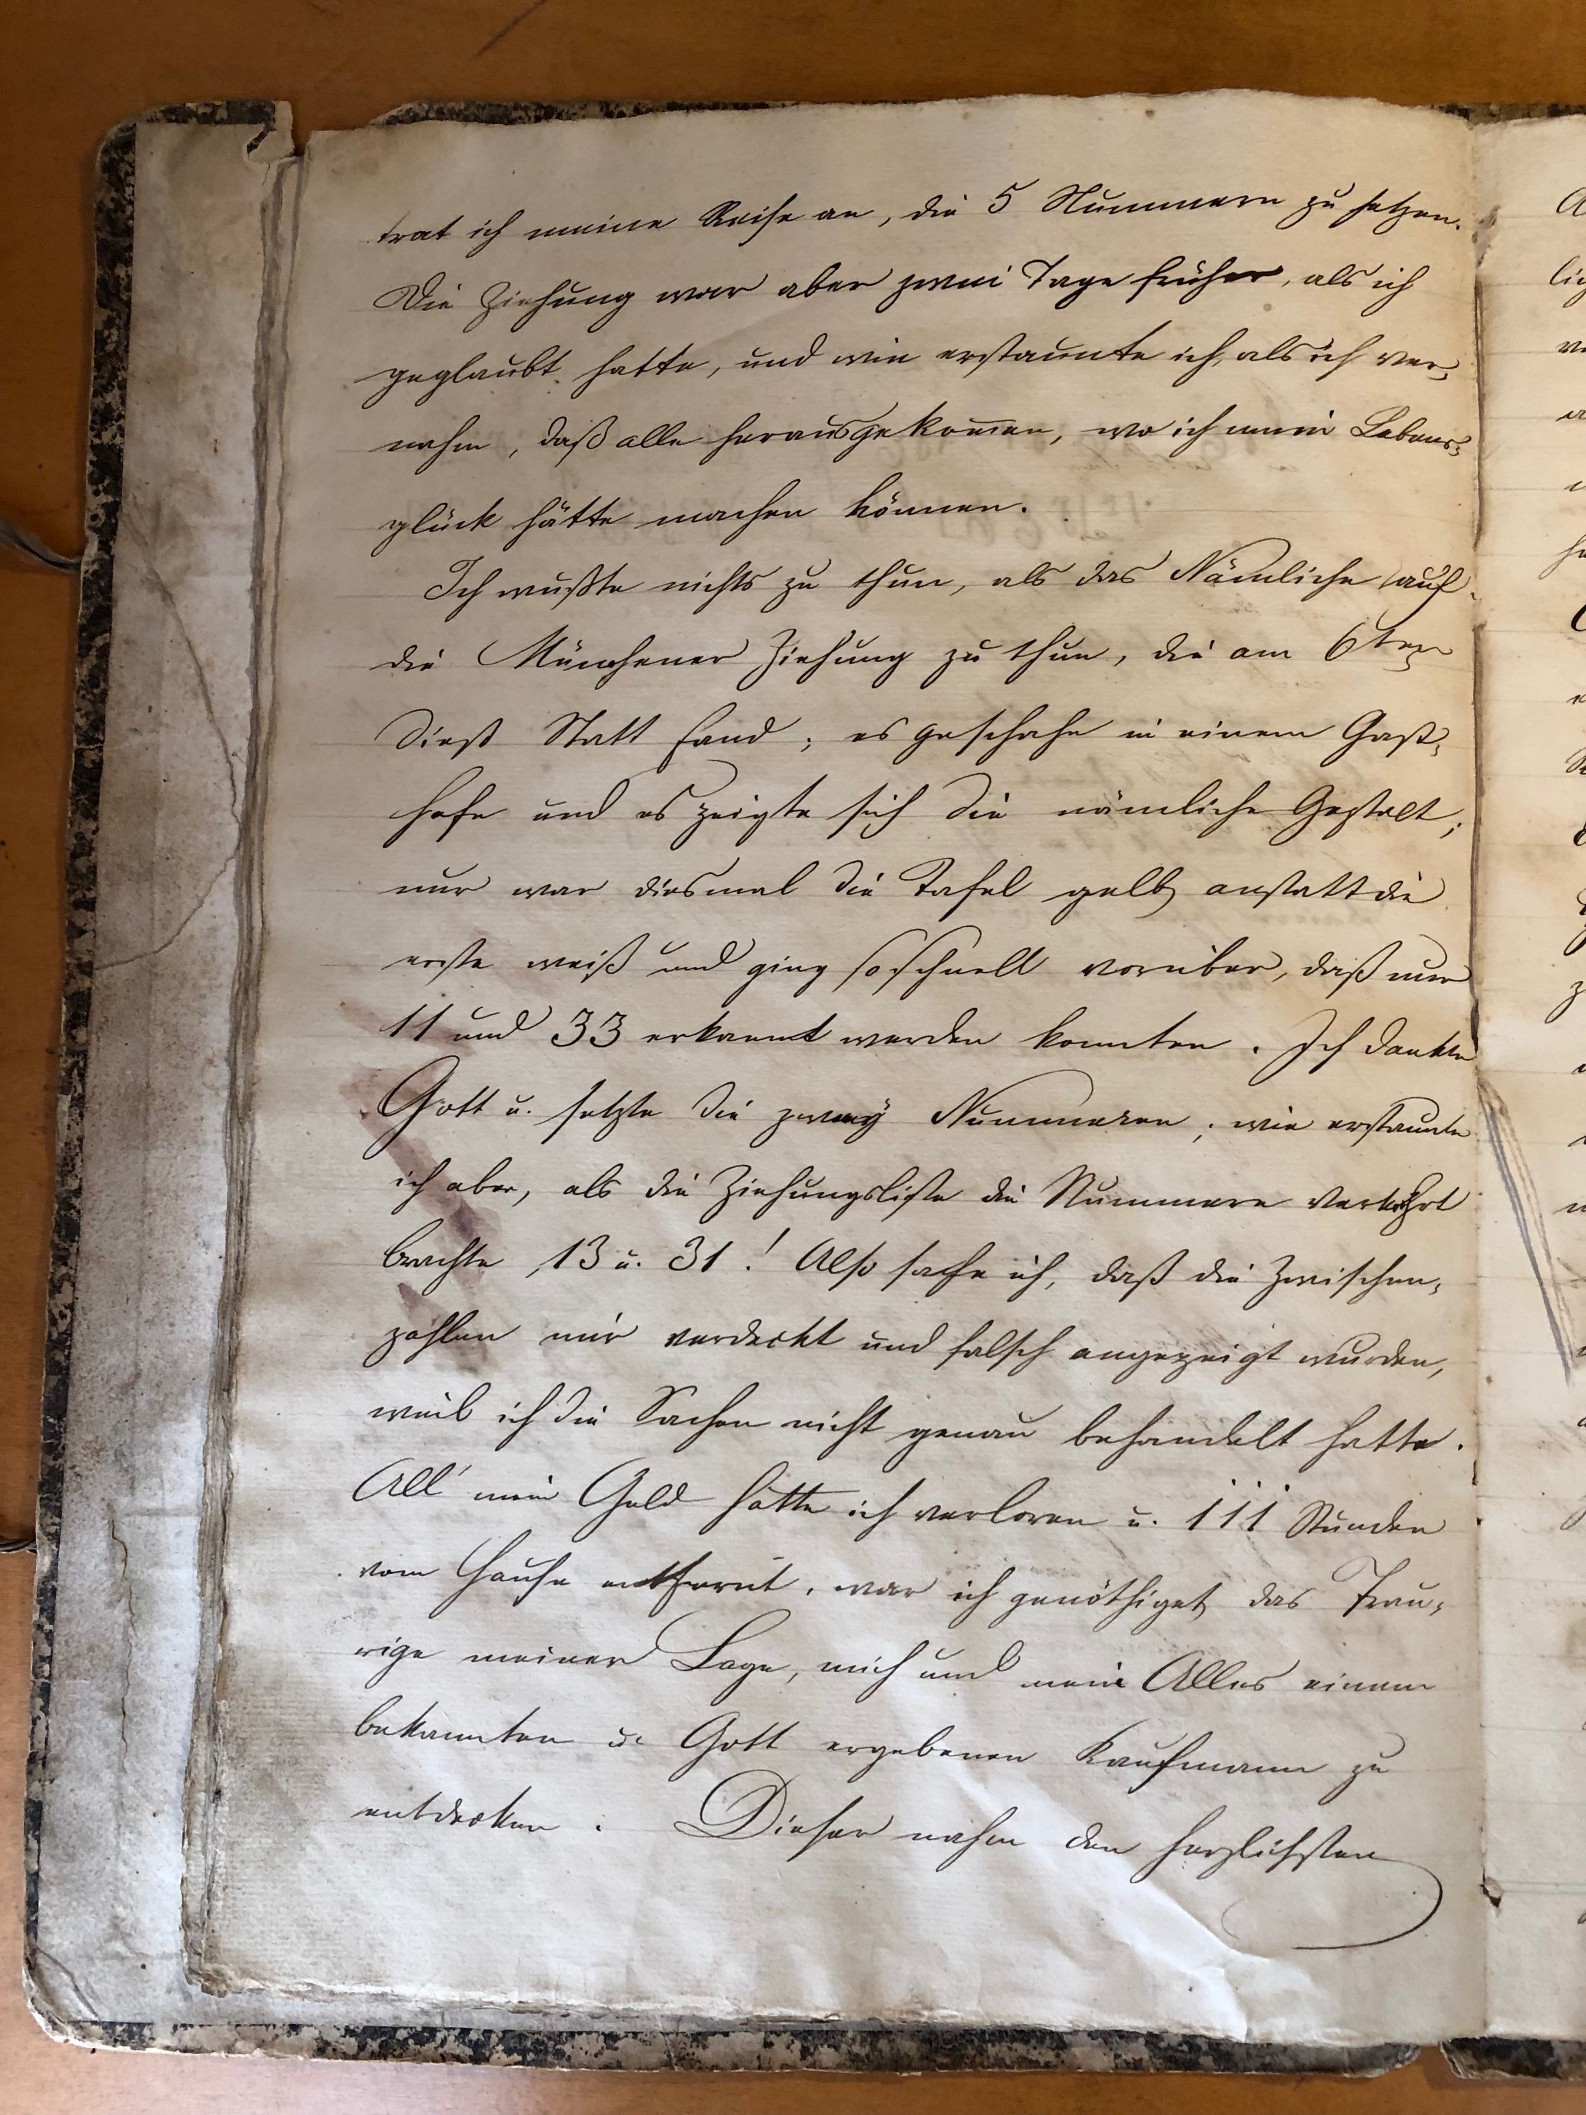 trat ich meine Reise an, die 5 Nummern zu setzen.
Die Ziehung war aber zwei Tage früher, als ich
geglaubt hatte, und wie erstaunte ich, als ich ver-
nahm, daß alle herausgekommen, wo ich mein Lebens-
glück hätte machen können.
Ich wußte nichts zu thun, als das Nämliche auf
die Münchener Ziehung zu thun, die am 6ten
dieß Statt fand; es geschahe in einem Gast-
hofe und es zeigte sich die nämliche Gestalt;
nur war diesmal die Tafel gelb anstatt die
erste weiß und ging so schnell vorüber, daß nur
11 und 33 erkannt werden konnten. Ich dankte
Gott u. setzte die zwey Nummeren; wie erstaunte
ich aber, als die Ziehungsliste die Nummern verkehrt
brachte, 13 u. 31! Also sahe ich, daß die Zwischen-
zahlen mir verdeckt und falsch angezeigt wurden,
weil ich die Sachen nicht genau behandelt hatte.
All' mein Geld hatte ich verloren u. 111 Stunden
vom Hause entfernt, war ich genöthiget das Trau-
rige meiner Lage, mich und mein Alles einem
bekannten u. Gott ergebenen Kaufmann zu
entdecken. Dieser nahm den herzlichsten